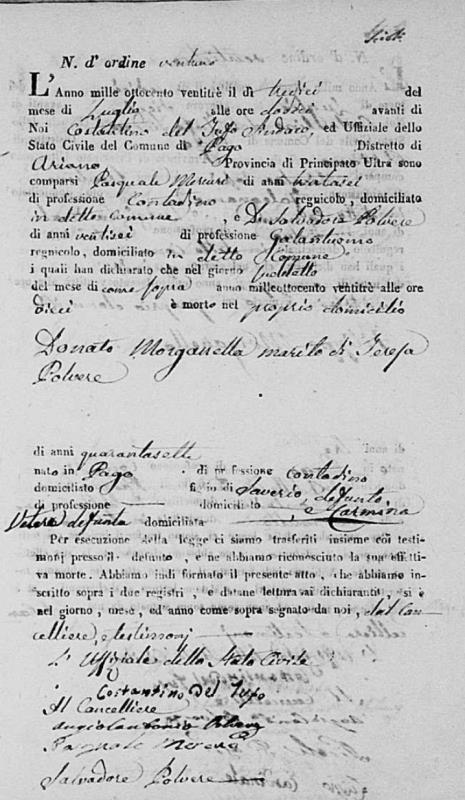 N. d' ordine ventuno
L'Anno mille ottocento ventitrè il dì tredici del
mese di Luglio alle ore dodici avanti di
Noi Costantino del Tufo Sindaco, ed Uffiziale dello
Stato Civile del Comune di Pago Distretto di
Ariano Provincia di Principato Ultra sono
comparsi Pasquale Mercuri di anni trentasei
di professione Contadino regnicolo, domiciliato
in detto comune, e D. Salvadore Polvere
di anni ventisei di professione Galantuomo
regnicolo, domiciliato in detto Comune
i quali han dichiarato che nel giorno suddetto
del mese di come sopra anno milleottocento ventitrè alle ore
dieci è morto nel proprio domicilio
Donato Morganella marito di Teresa
Polvere
di anni quarantasette
nato in Pago di professione contadino
domiciliato figlio di Saverio, defunto
di professione domiciliato , e Carmina
defunta domiciliata
Per esecuzione della legge ci siamo trasferiti insieme coi testi-
monj presso il defunto, e ne abbiamo riconosciuto la sua effetti-
va morte. Abbiamo indi formato il presente atto, che abbiamo in-
scritto sopra i due registri, e datane lettura ai dichiaranti, si è
nel giorno, mese, ed anno come sopra segnato da noi, dal Can-
celliere, e testimonj
L' Uffiziale dello Stato Civile
Costantino Del Tufo
Il Cancelliere
Angiolantonio Polvere
Pasquale
Salvadore Polvere